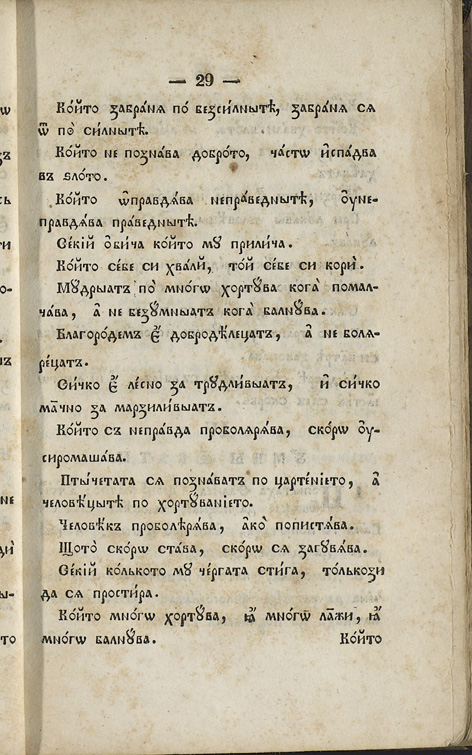 — 29 —
Ко́йто забра́нѧ по́ безси́лнытѣ, забра́нѧ сѧ
ѿ по́ си́лнытѣ.
Ко́йто не позна́ва добро́то, ча́стѡ и҆спа́два
въ ѕло́то.
Ко́йто ѡ҆правдѧ́ва непра́веднытѣ, ѹ҆не-
правдѧ́ва пра́веднытѣ.
Се́кїй ѻ҆би́ча ко́йто мꙋ прили́ча.
Ко́йто се́бе си хвалѝ, то́й се́бе си корѝ.
Мꙋ́дрыатъ по мно́гѡ хортꙋ́ва кога̀ помал-
ча́ва, а҆ не безꙋ́мныатъ кога̀ балнꙋ́ва.
Благоро́демъ є҆ добродѣ́лецатъ, а҆ не боля-
ре́цатъ.
Си́чко є҆ ле́сно за трꙋдли́выатъ, и҆ си́чко
ма́чно за марзили́выатъ.
Ко́йто съ непра́вда проболярѧ́ва, ско́рѡ ѹ҆-
сиромаша́ва.
Пты́четата сѧ позна́ватъ по цартѐнїето, а҆
человѣ́цытѣ по хортꙋ́ванїето.
Человѣ́къ проболѣрѧ́ва, а҆ко̀ попистѧ́ва.
Щото̀ ско́рѡ ста́ва, ско́рѡ сѧ загꙋбѧ́ва.
Се́кїй ко́лькото мꙋ че́ргата сти́га, то́лькози
да сѧ прости́ра.
Ко́йто мно́гѡ хортꙋ́ва, ꙗ҆̀ мно́гѡ ла́жи, ꙗ҆̀
мно́гѡ балнꙋ́ва. Ко́йто